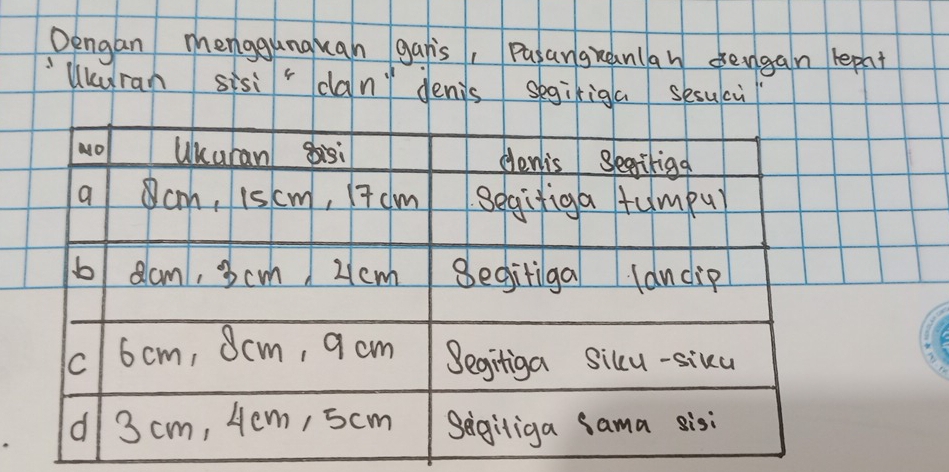 Dengan menggunakan garis, Pasangkanlah dengan tepat
"Ukuran sisi" dan "Jenis segitiga sesuai"
No Ukuran sisi Jenis Segitiga
a 8cm, 15cm, 17cm Segitiga tumpul
b 2cm, 3cm, 4cm Segitiga lancip
c 6cm, 8cm, 9cm Segitiga Siku-siku
d 3cm, 4cm, 5cm Segitiga Sama sisi